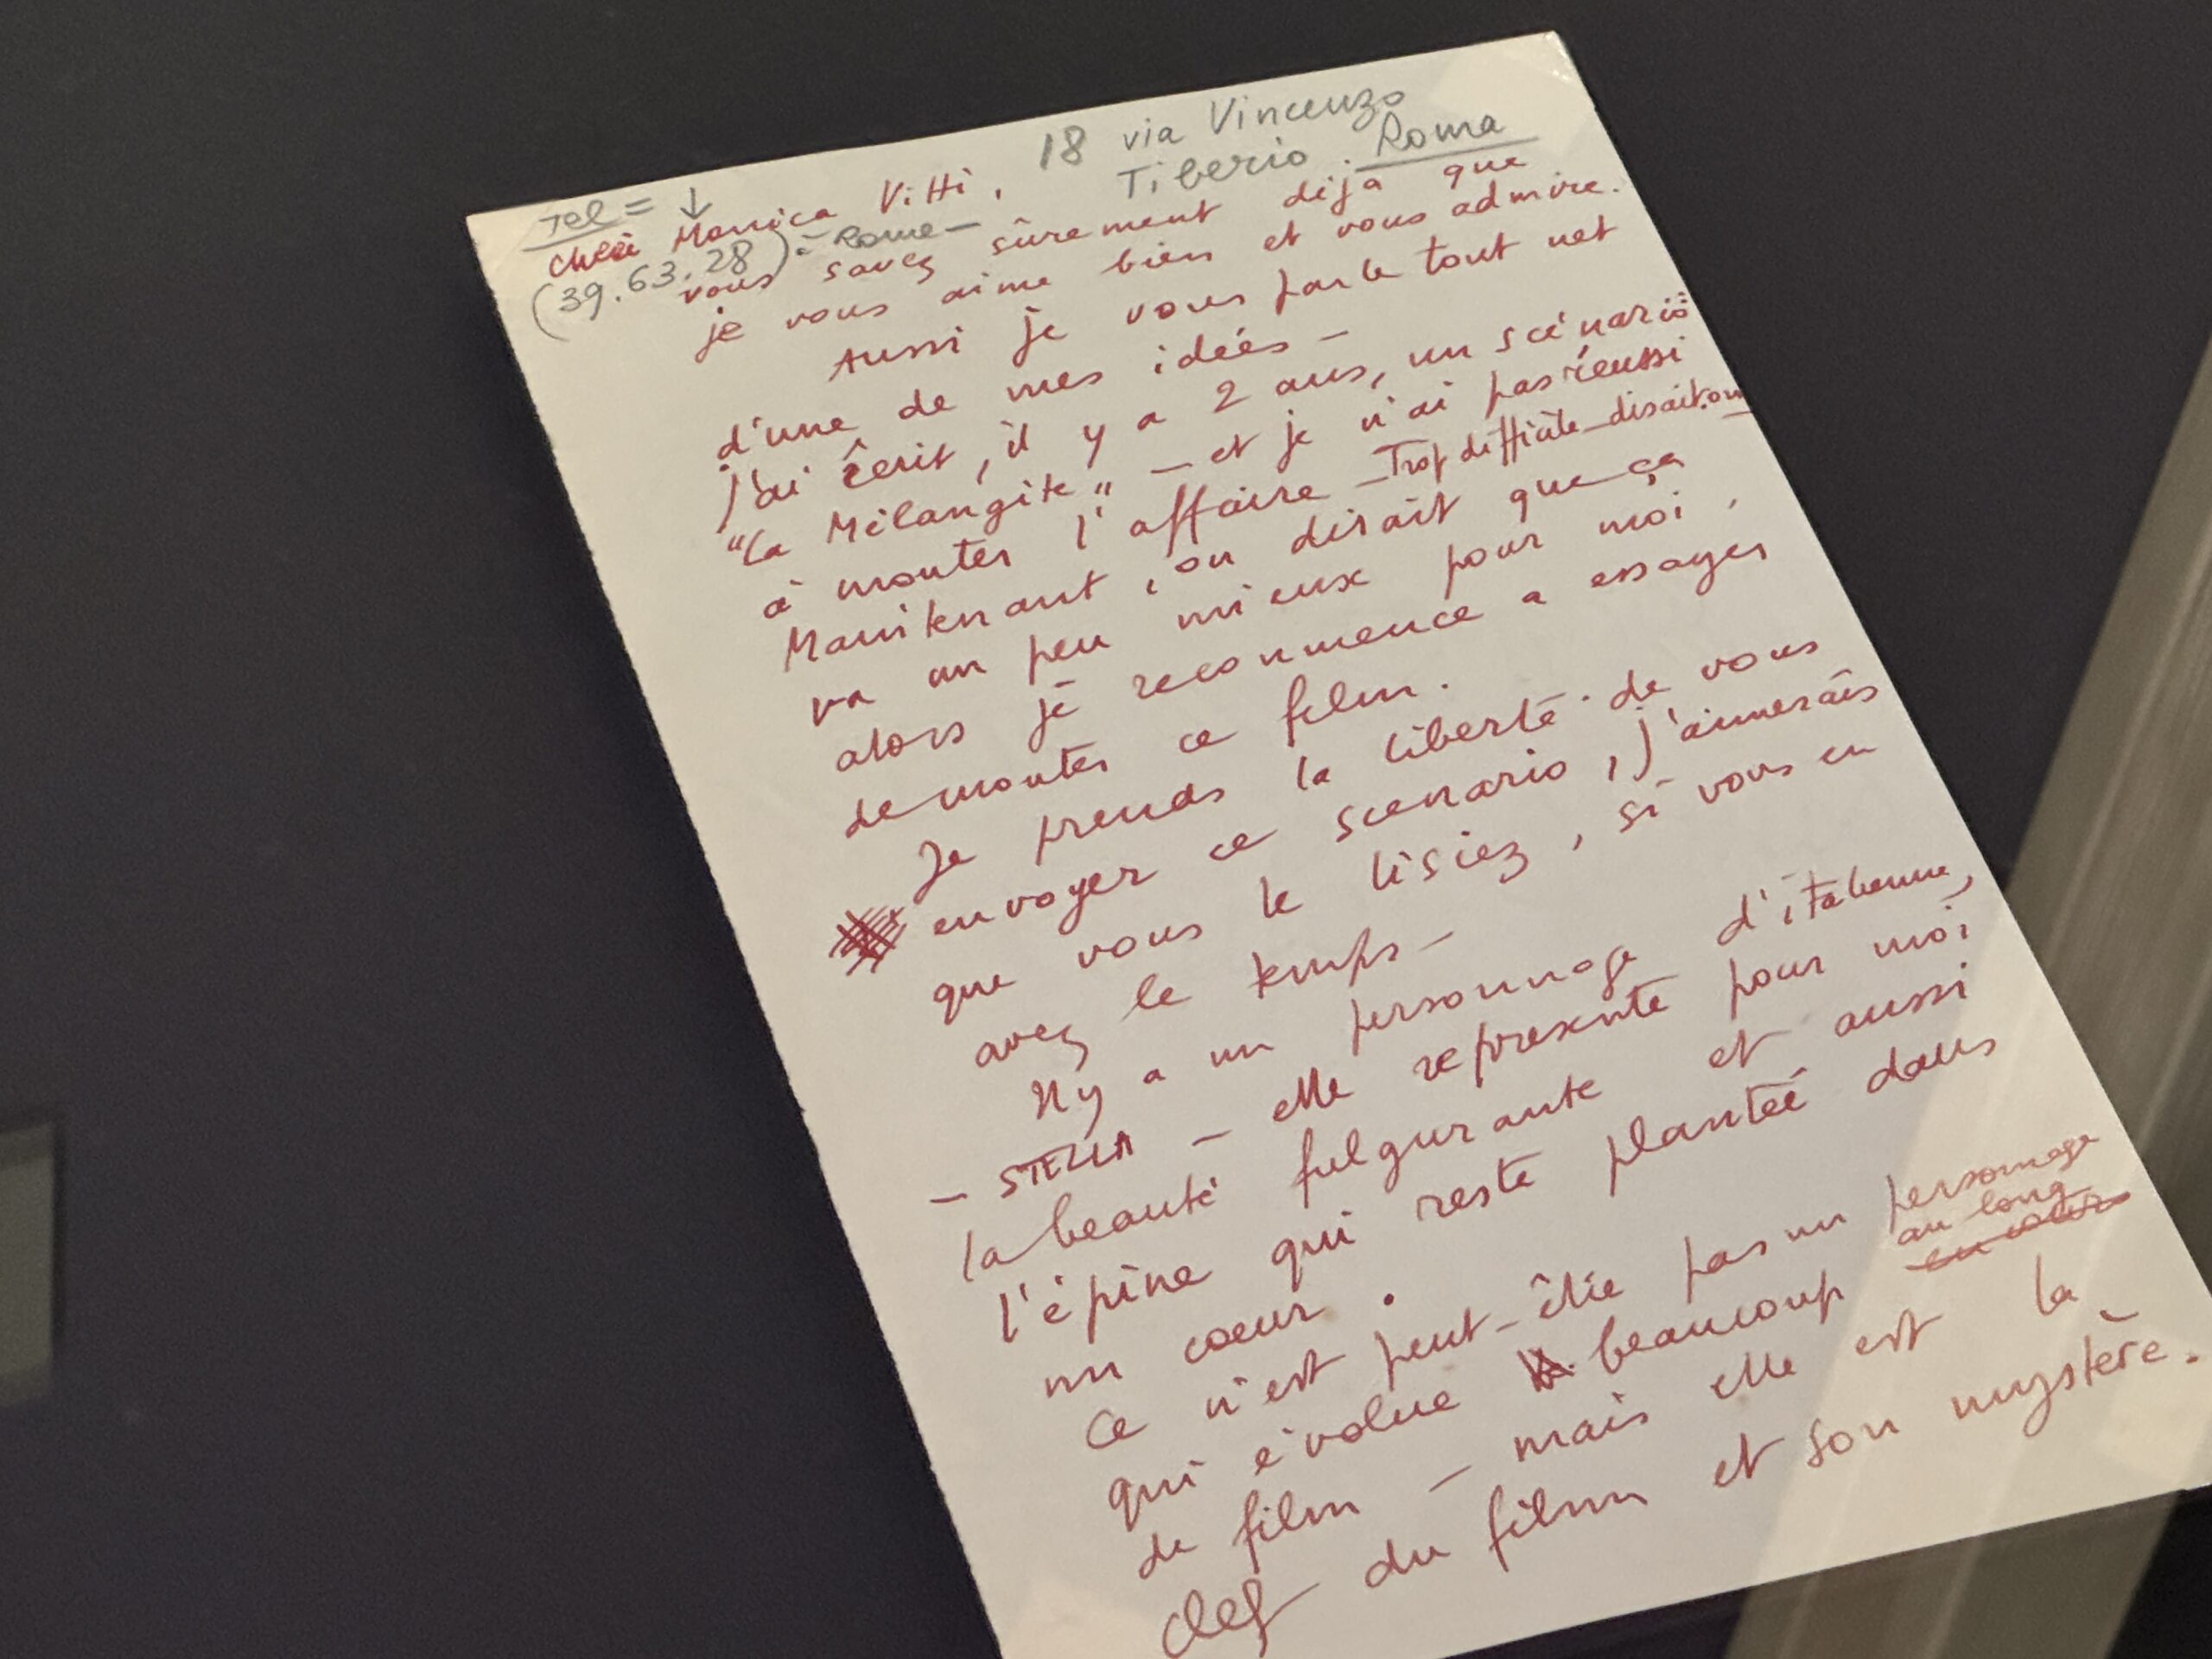 18 via Vincenzo
Tiberio. Roma
Tel = ↓
(39.63.28) à Rome -
chère Monica Vitti,
vous savez sûrement déjà que
je vous aime bien et vous admire.
Aussi je vous parle tout net
d'une de mes idées -
j'ai écrit, il y a 2 ans, un scénario
"La Mélangite" - et je n'ai pas réussi
à monter l'affaire - Trop difficile - disait-on -
Maintenant, on dirait que ça
va un peu mieux pour moi,
alors je recommence a essayer
de monter ce film.
Je prends la liberté de vous
envoyer ce scenario, j'aimerais
que vous le lisiez, si vous en
avez le temps -
Il y a un personnage d'italienne,
- STELLA - elle represente pour moi
la beauté fulgurante et aussi
l'épine qui reste plantée dans
un coeur.
Ce n'est peut-être pas un personnage
qui évolue beaucoup au long
de film - mais elle est la
clef du film et son mystère.